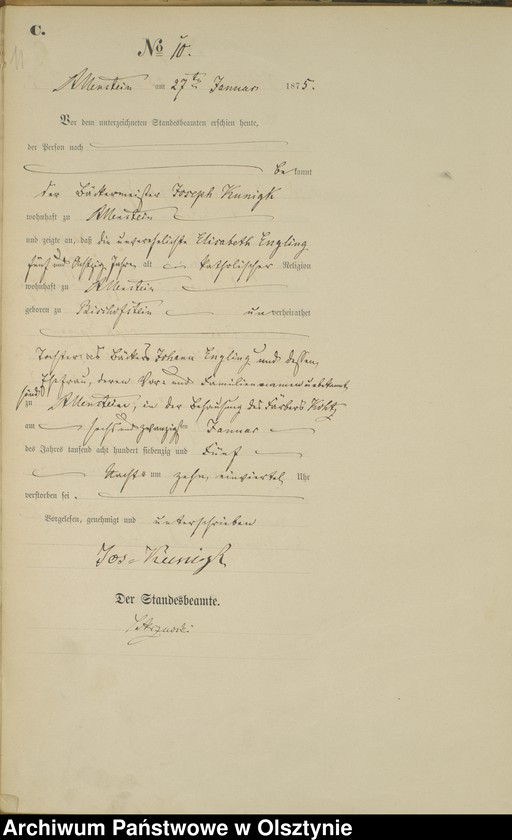 C.
11
No 10.
Allenstein am 27ten Januar 1875.
Vor dem unterzeichneten Standesbeamten erschien heute,
der Person nach
bekannt
der Bäckermeister Joseph Kunigk
wohnhaft zu Allenstein
und zeigte an, daß die unverehelichte Elisabeth Engling
fünf und achtzig Jahre alt katholischer Religion
wohnhaft zu Allenstein
geboren zu Bischofstein
unverheirathet
Tochter des Bäckers Johann Engling und dessen
Ehefrau, deren Vor- und Familiennamen unbekannt
sind
zu Allenstein, in der Behausung des Färbers
am sechs und zwanzigsten Januar
des Jahres tausend acht hundert siebenzig und fünf
Nachts um zehn einviertel Uhr
verstorben sei.
Vorgelesen, genehmigt und unterschrieben
Jos. Kunigk
Der Standesbeamte.
Archiwum Państwowe w Olsztynie